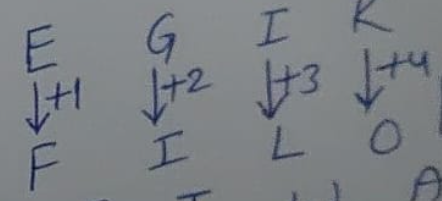 E G I K
↓+1 ↓+2 ↓+3 ↓+4
F I L O